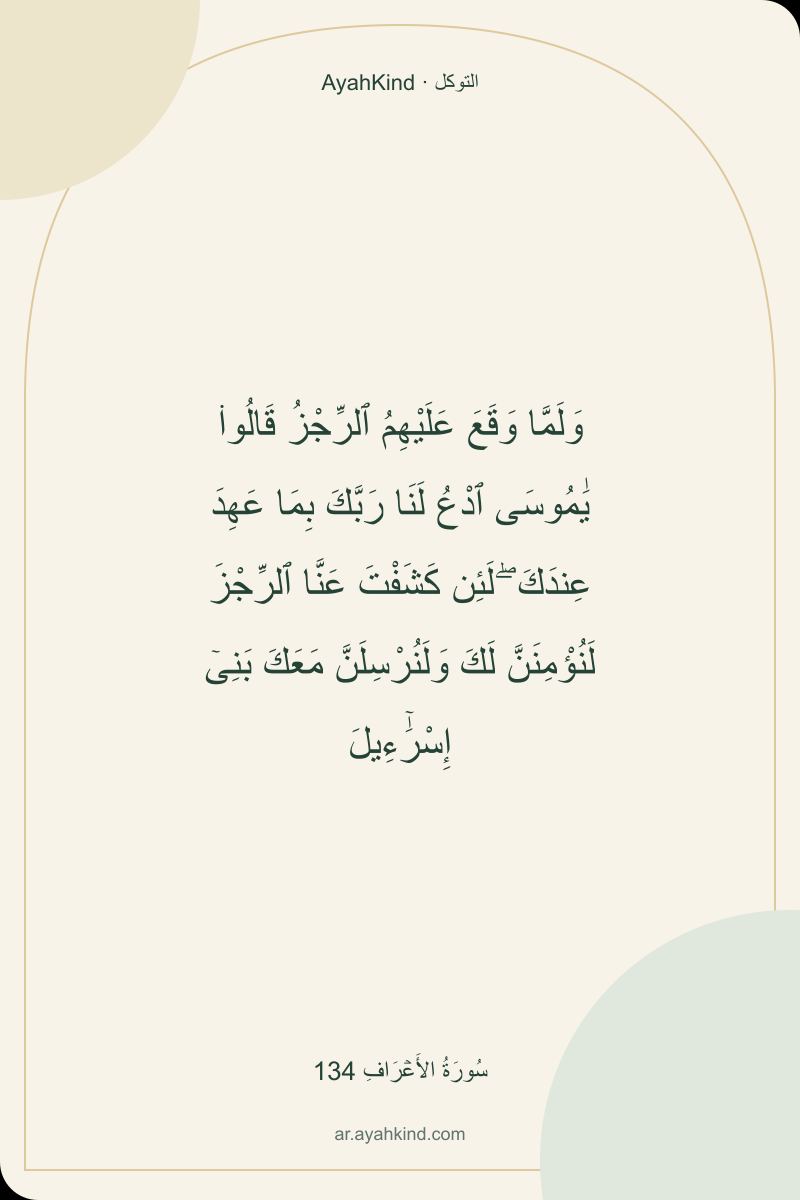 التوكل · AyahKind
وَلَمَّا وَقَعَ عَلَيْهِمُ ٱلرِّجْزُ قَالُوا۟
يَٰمُوسَى ٱدْعُ لَنَا رَبَّكَ بِمَا عَهِدَ
عِندَكَ ۖ لَئِن كَشَفْتَ عَنَّا ٱلرِّجْزَ
لَنُؤْمِنَنَّ لَكَ وَلَنُرْسِلَنَّ مَعَكَ بَنِىٓ
إِسْرَٰٓءِيلَ
سُورَةُ الأَعۡرَافِ 134
ar.ayahkind.com